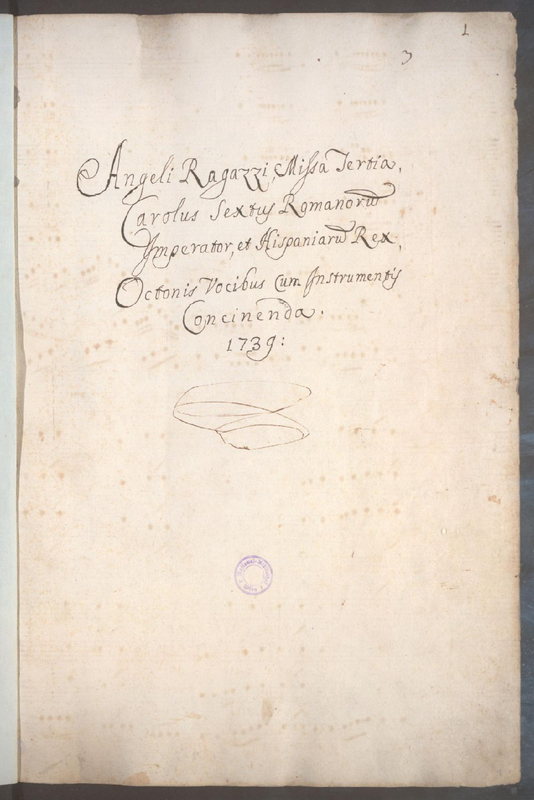 1
3
Angeli Ragazzi, Missa Tertia,
Carolus Sextus Romanorũ
Imperator, et Hispaniarũ Rex,
Octonis Vocibus Cum Instrumentis
Concinenda.
1739: